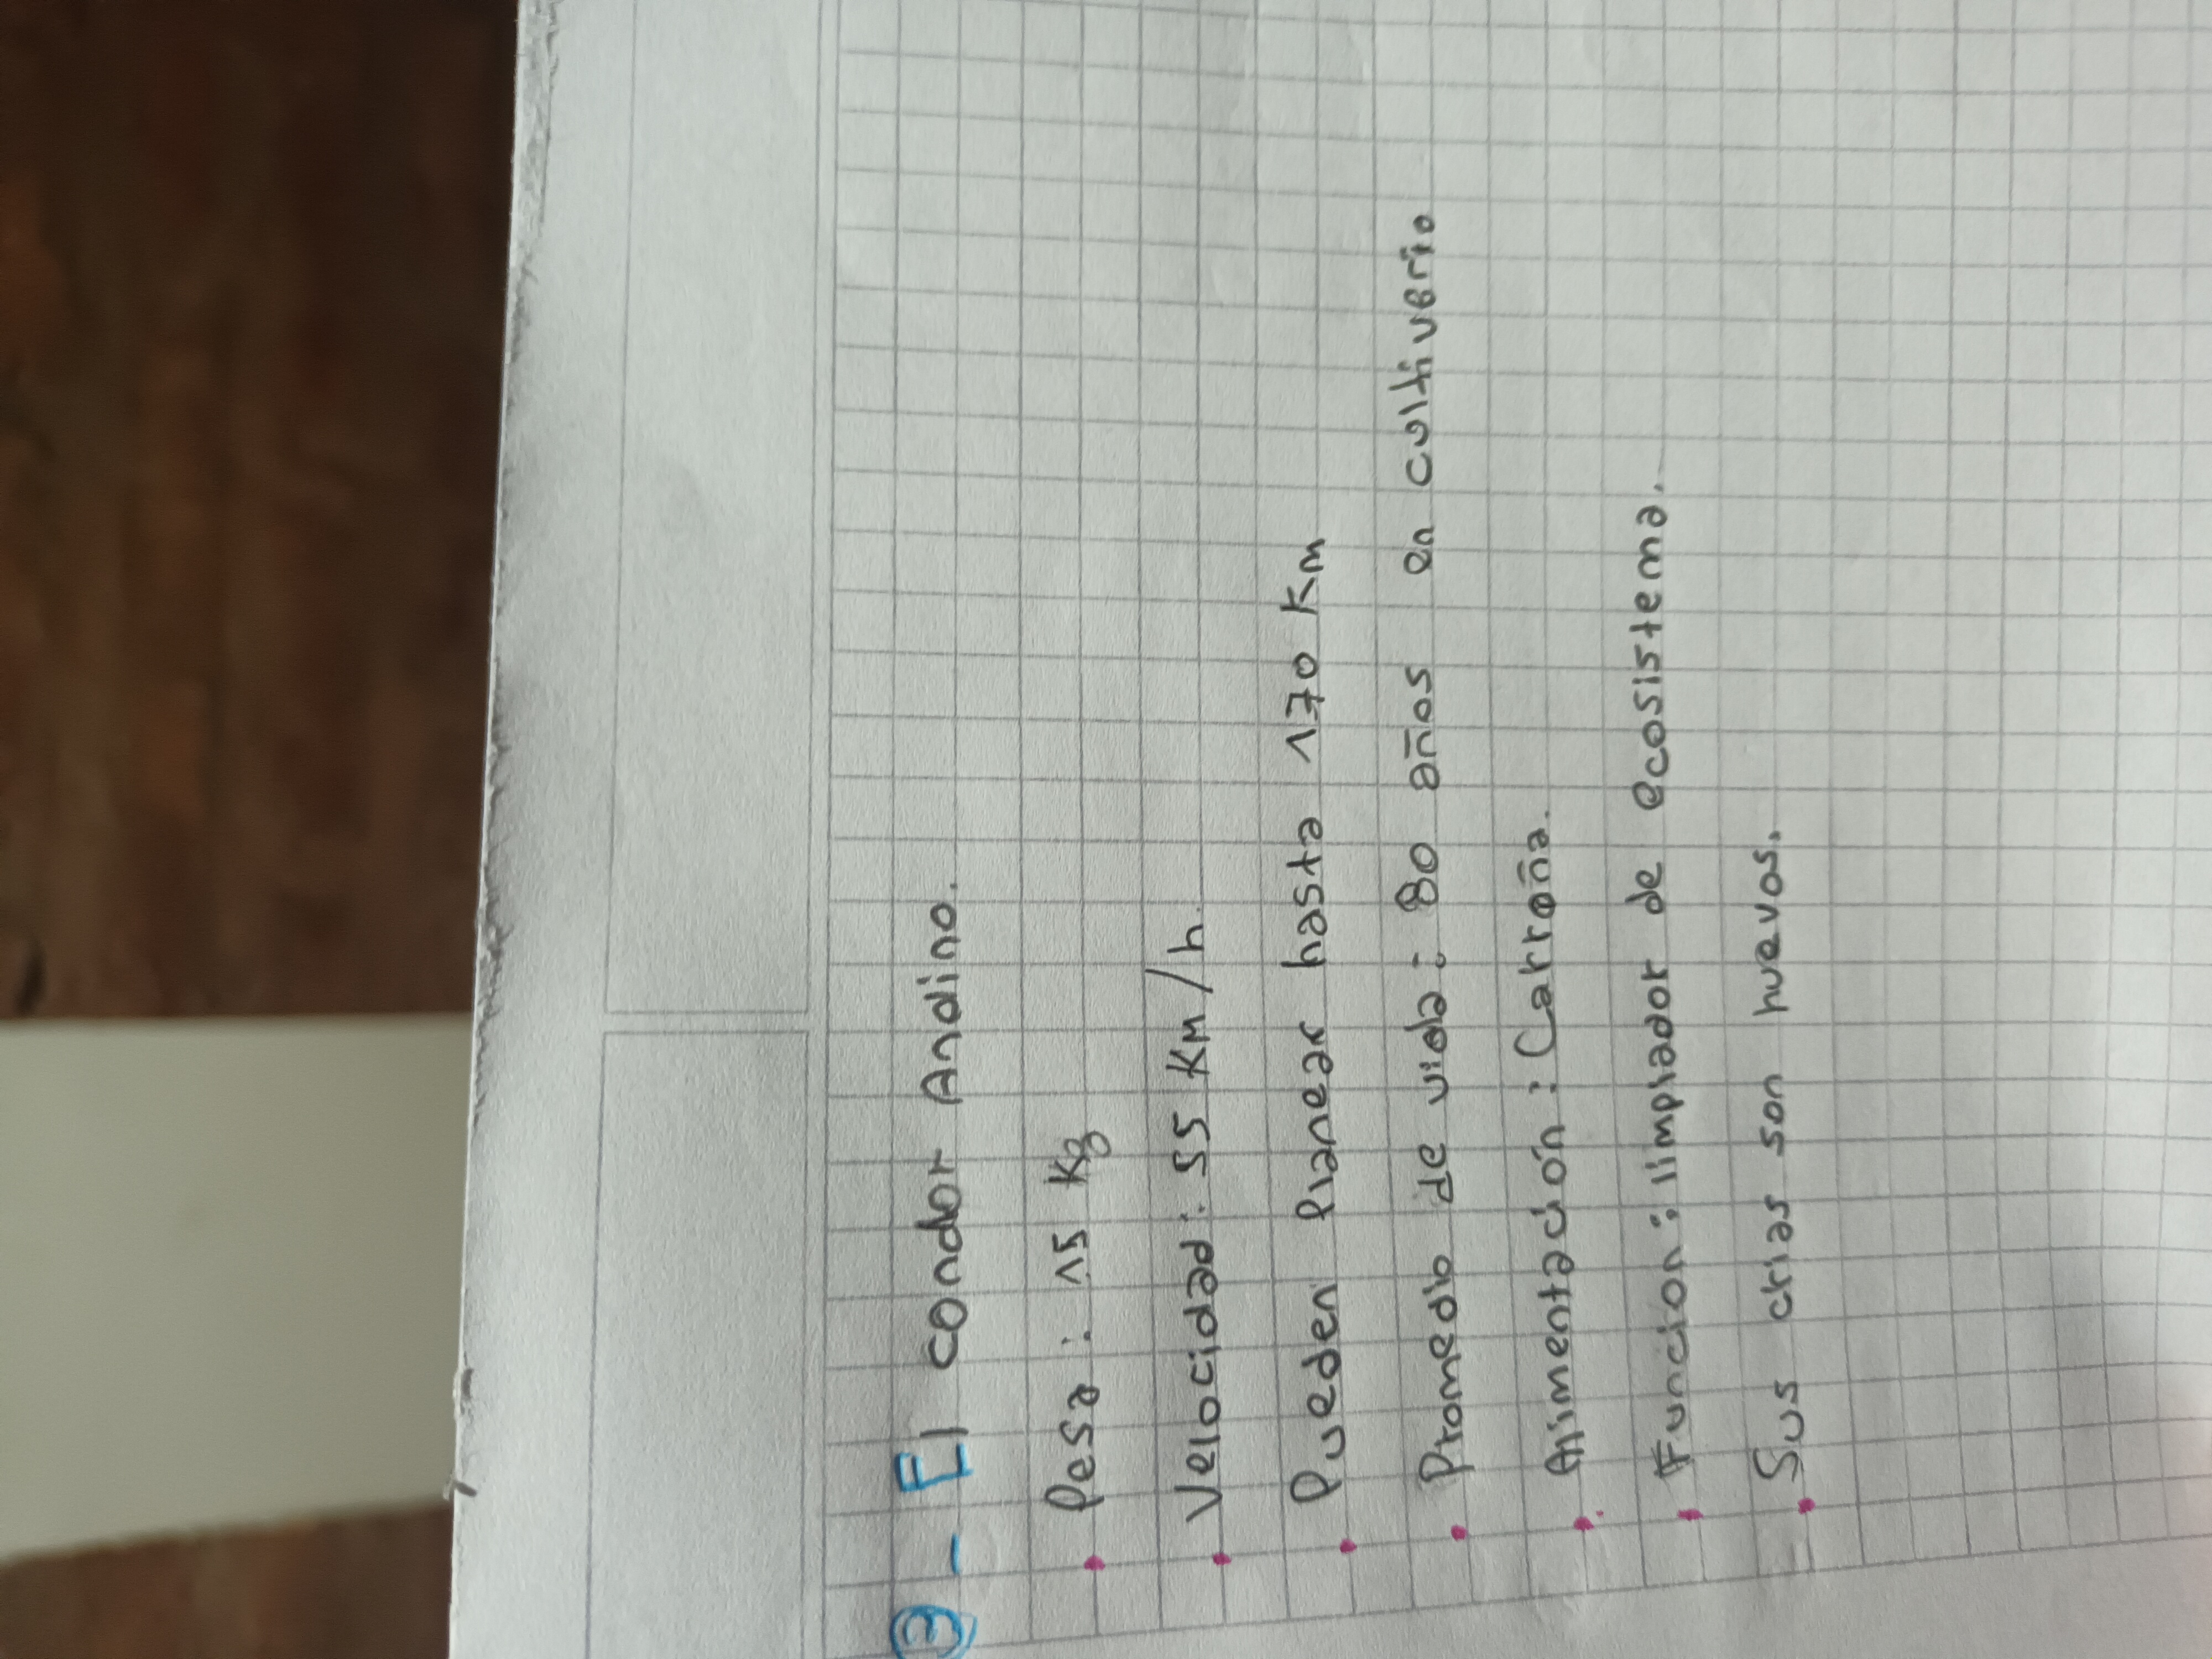 3 - El condor Andino.
• Pesa : 15 Kg
• Velocidad : 55 Km/h.
• Pueden Planear hasta 170 Km
• Promedio de vida : 80 años en cultiverio.
• Alimentación : Carroña.
• Funcion : limpiador de ecosistema.
• Sus crias son huevos.